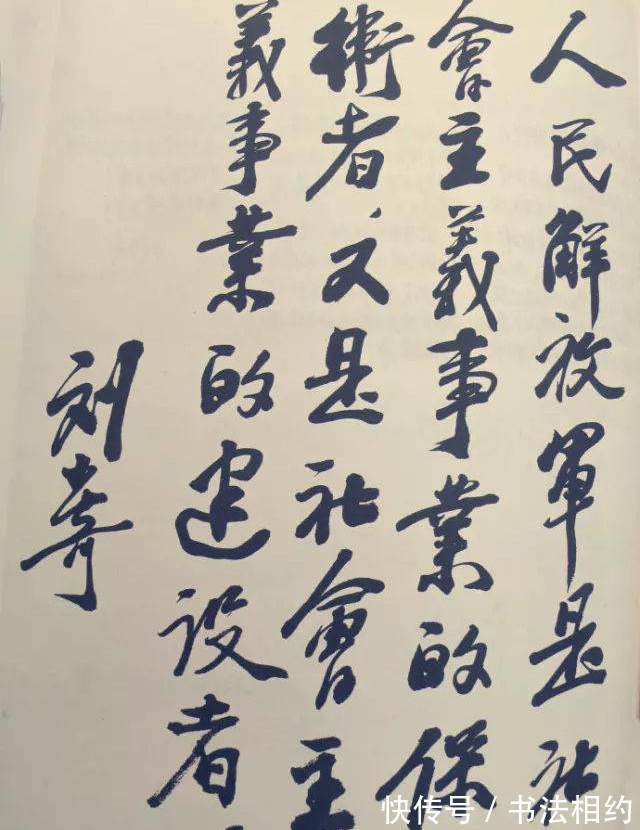 人民解放軍是社
會主義事業的保
衛者,又是社會主
義事業的建设者
刘
快传号 / 书法相约